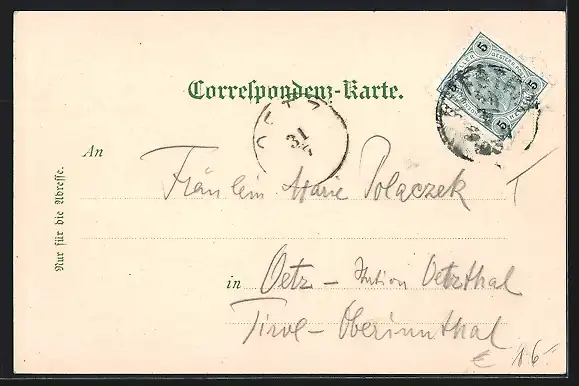 5 5
5
Correspondenz-Karte.
OETZ
31
7
An
Fräulein Marie Polaczek
Nur für die Adresse.
in Oetz - Station Oetzthal
Tirol - Oberinnthal
€ 16.-